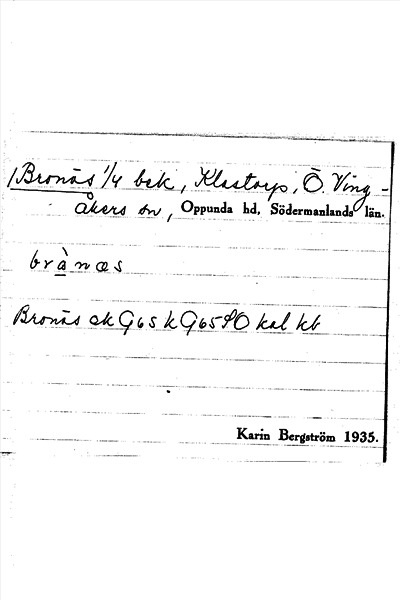 Bronäs 1/4 bsk, Klastorp, Ö. Ving-
åkers sn, Oppunda hd, Södermanlands län.
brànæs
Bronäs ak G65 k G65 SO kal kb
Karin Bergström 1935.